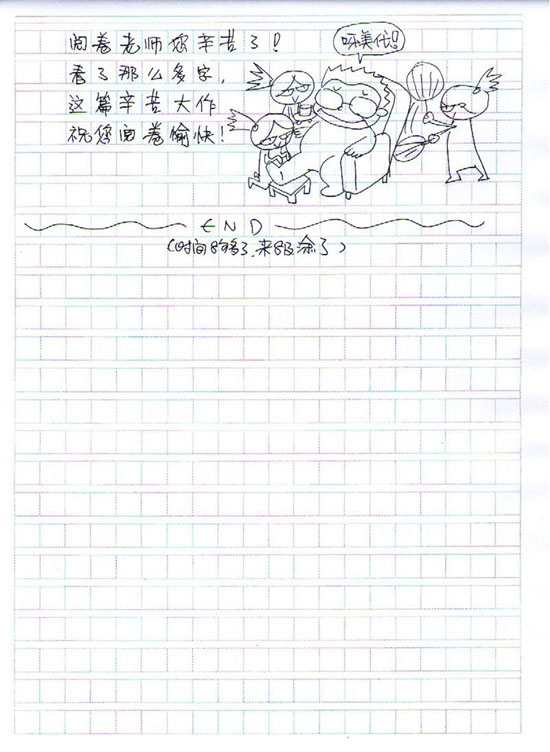 阅卷老师您辛苦了!
看了那么多字,
这篇辛苦大作
祝您阅卷愉快!
END
(时间够了.来 涂了)